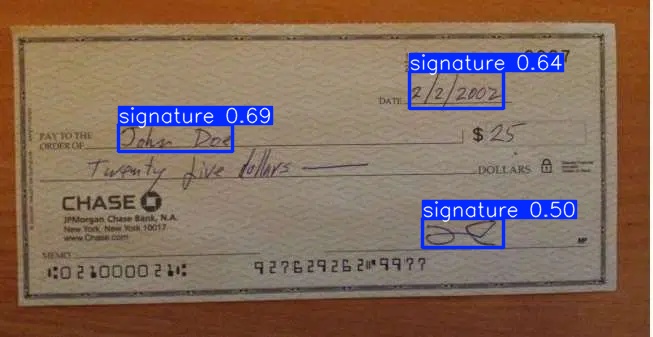 signature 0.64
DATE 2/2/2002
signature 0.69
PAY TO THE
ORDER OF John Doe $ 25
Twenty five dollars DOLLARS
CHASE
JPMorgan Chase Bank, N.A.
New York, New York 10017
www.Chase.com
signature 0.50
MEMO MP
⑆021000021⑆ 927629262⑈9977